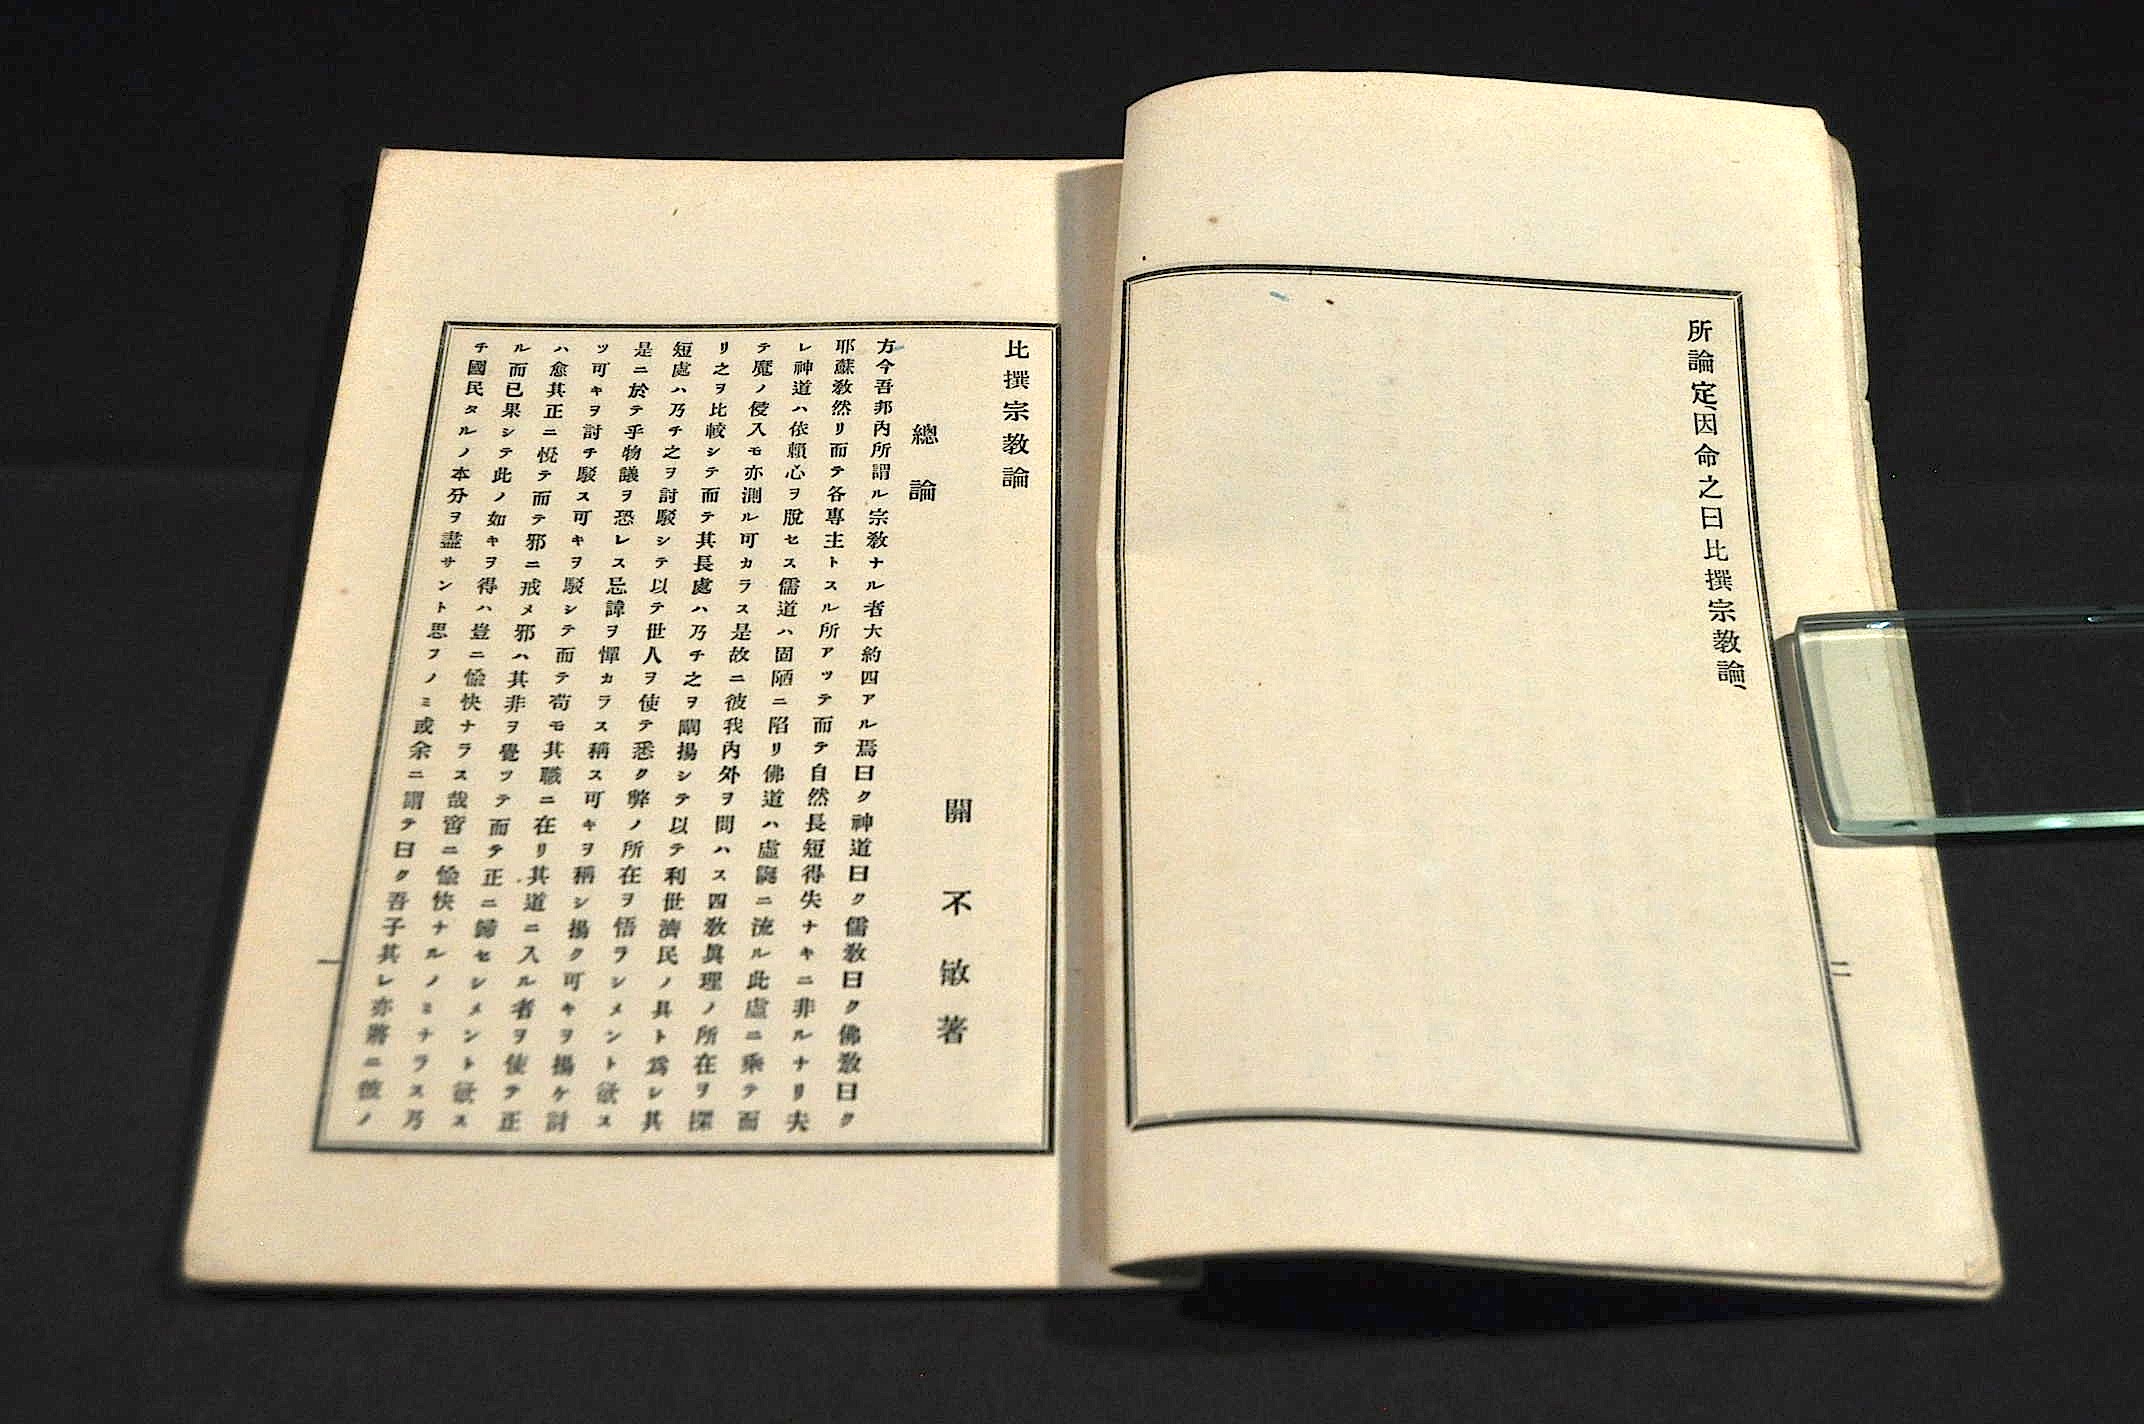 所論定、因命之曰比撰宗教論、
二
比撰宗教論
關不敏著
總論
方今吾邦内所謂ル宗敎ナル者大約四アル焉曰ク神道曰ク儒敎曰ク佛敎曰ク
耶蘇敎然リ而テ各專主トスル所アツテ而テ自然長短得失ナキニ非ルナリ夫
レ神道ハ依賴心ヲ脫セス儒道ハ固陋ニ陷リ佛道ハ虛誕ニ流ル此虛ニ乘テ而
テ魔ノ侵入モ亦測ル可カラス是故ニ彼我内外ヲ問ハス四敎眞理ノ所在ヲ探
リ之ヲ比較シテ而テ其長處ハ乃チ之ヲ闡揚シテ以テ利世濟民ノ具ト爲シ其
短處ハ乃チ之ヲ討駁シテ以テ世人ヲ使テ悉ク弊ノ所在ヲ悟ラシメント欲ス
是ニ於テ乎物議ヲ恐レス忌諱ヲ憚カラス稱ス可キヲ稱シ揚ク可キヲ揚ケ討
ツ可キヲ討チ駁ス可キヲ駁シテ而テ苟モ其職ニ在リ其道ニ入ル者ヲ使テ正
ハ愈其正ニ悅テ而テ邪ニ戒メ邪ハ其非ヲ覺ツテ而テ正ニ歸セシメント欲ス
ル而已果シテ此ノ如キヲ得ハ豈ニ愉快ナラス哉啻ニ愉快ナルノミナラス乃
チ國民タルノ本分ヲ盡サント思フノミ或余ニ謂テ曰ク吾子其レ亦將ニ彼ノ
一